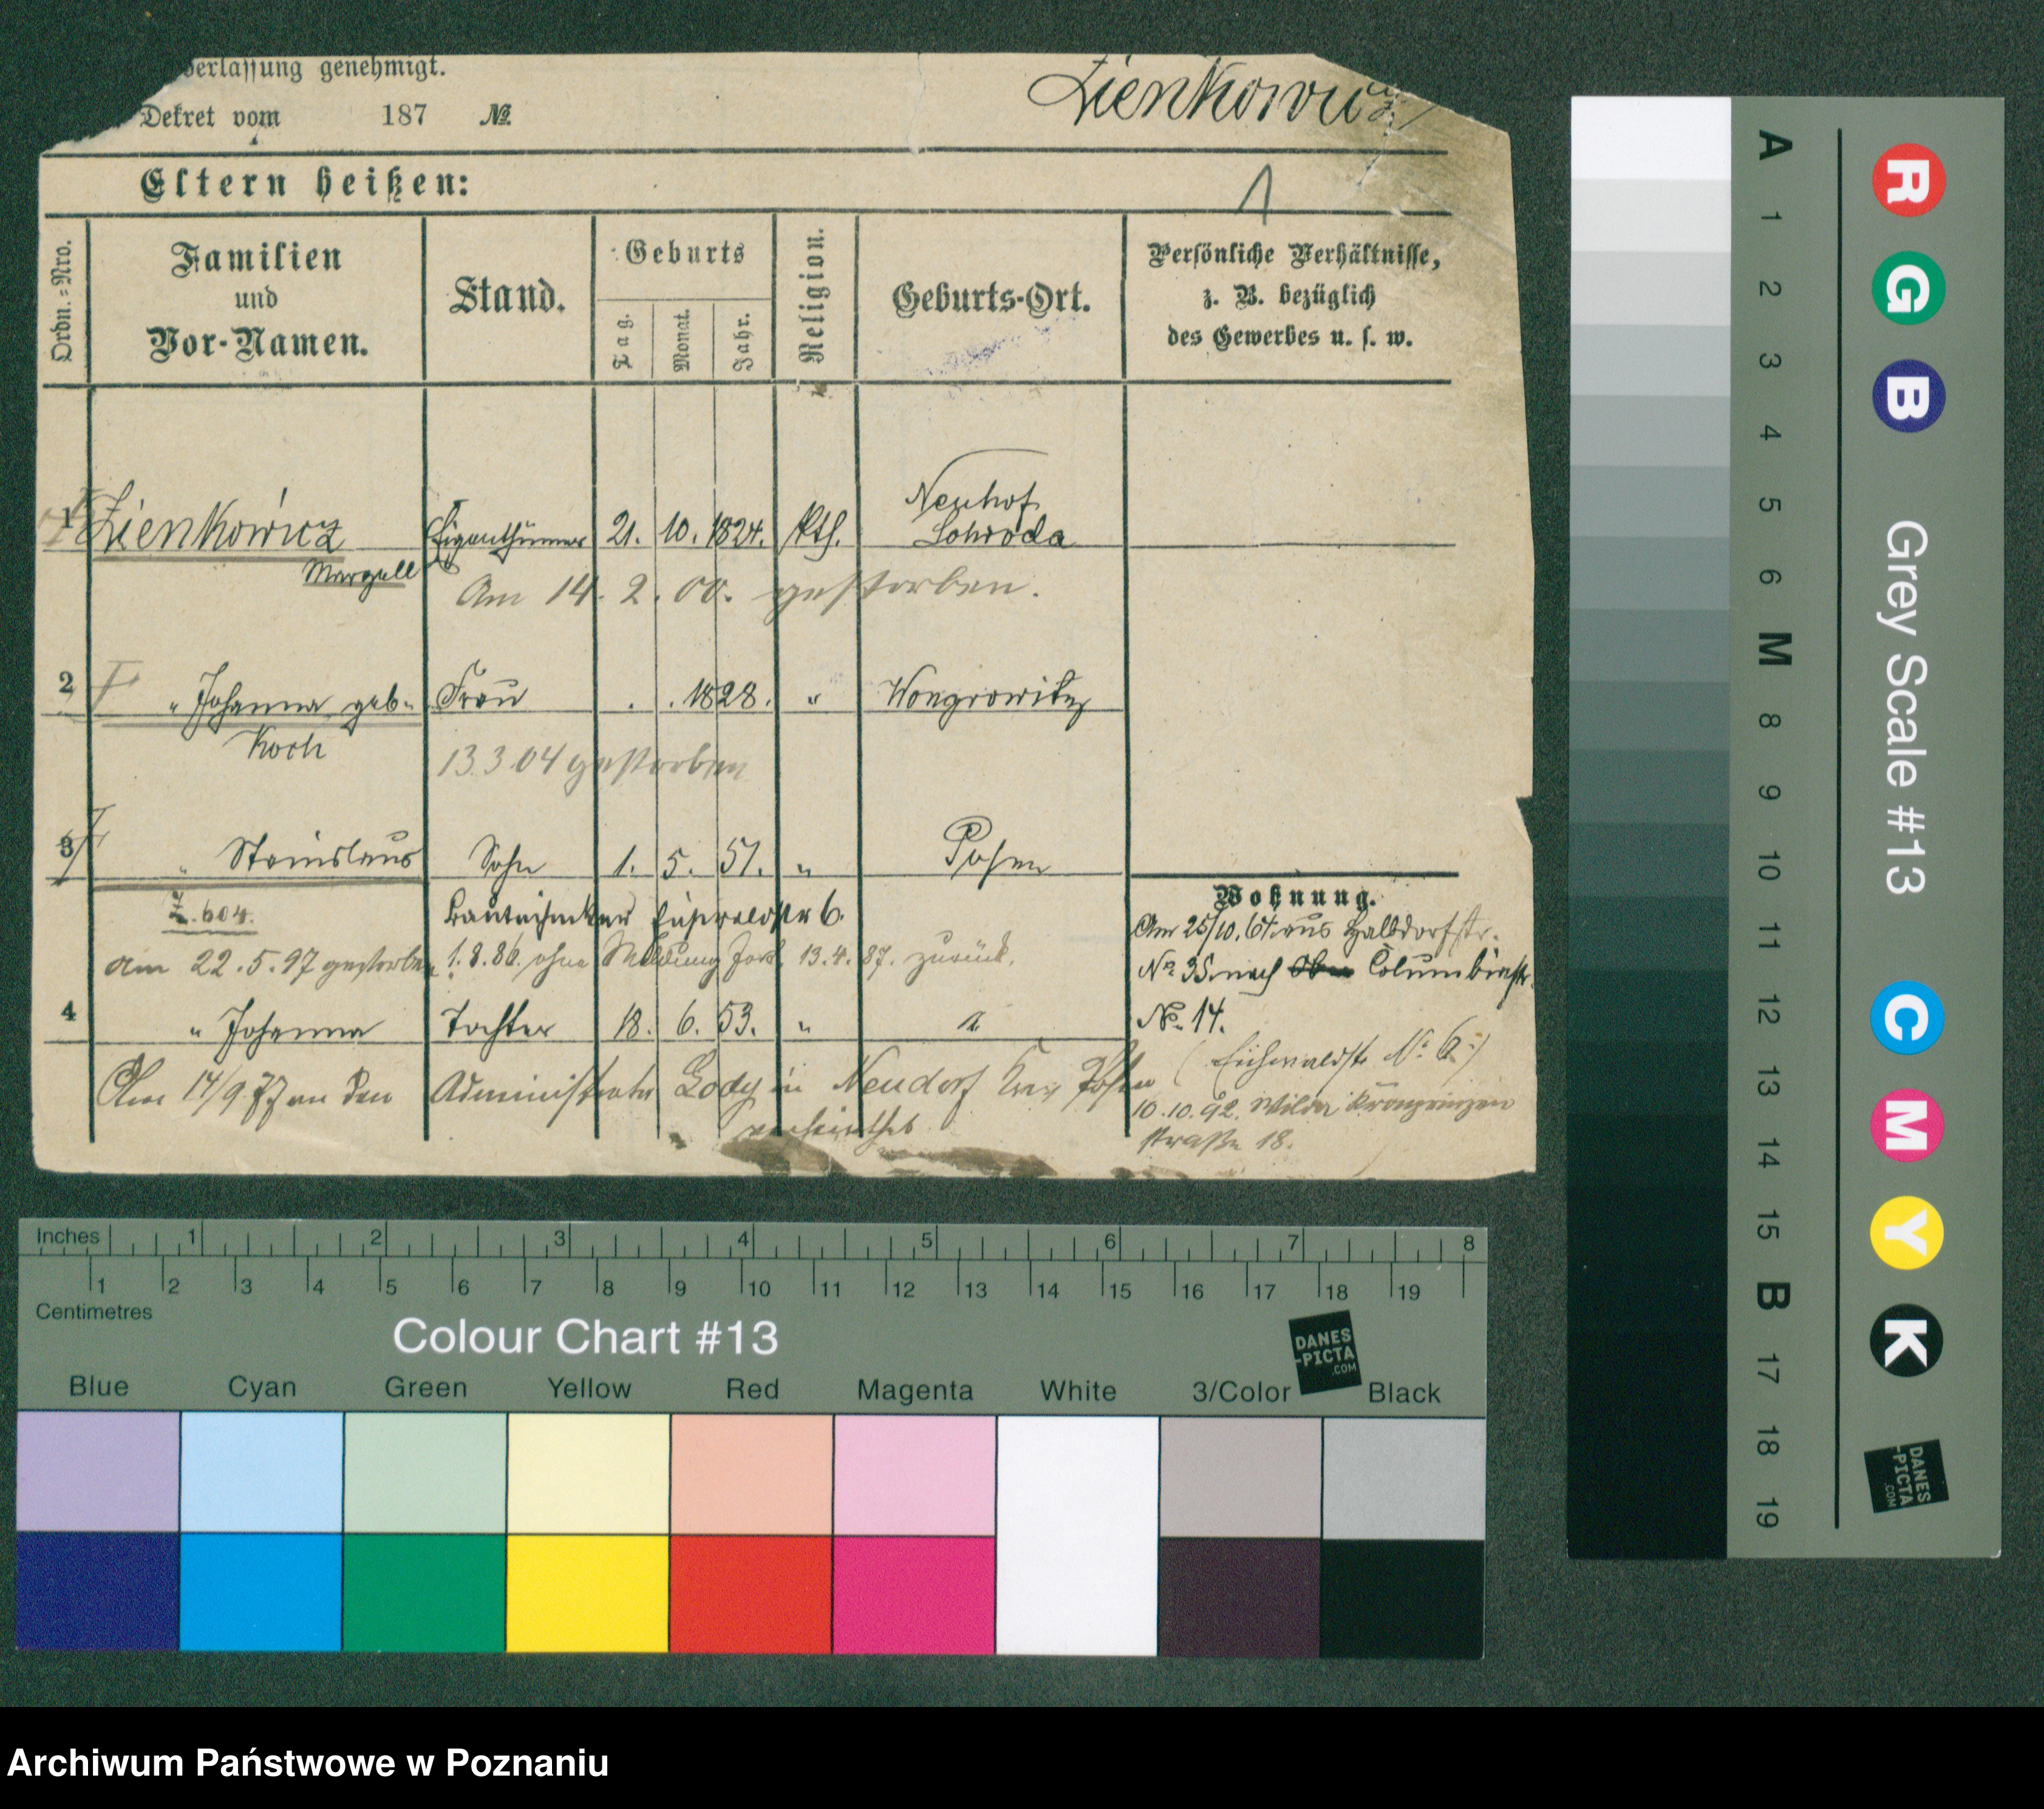 erlassung genehmigt.
Dekret vom 187 №
Zienkowicz
1
Eltern heißen:
Ordn.-Nro.
Familien
und
Vor-Namen.
Stand.
Geburts
Tag.
Monat.
Jahr.
Religion.
Geburts-Ort.
Persönliche Verhältnisse,
z. B. bezüglich
des Gewerbes u. s. w.
1 Zienkowicz Eigenthümer 21. 10. 1824. kth. Neuhof
Marzell
Am 14. 2. 00. gestorben.
2 " Johanna geb. Frau . . 1828. " Wongrowitz
Koch
13.3.04 gestorben
3 " Stanislaus Sohn 1. 5. 51. " Posen
Z. 604.
Bautechniker Eichwaldstr 6.
am 22.5.97 gestorben 1.8.86. ohne Meldung fort. 13.4.87. zurück.
4 " Johanna Tochter 18. 6. 53. " "
Am 14/9 77 an den Administrator in Neudorf Posen
verheirathet.
Wohnung.
Am 25/10.64 aus Halbdorfstr.
No. 35 nach Columbiastr.
No. 14.
(Eichwaldstr No 6:)
10.10.92. Wilda Kronprinzen
straße 18.
Inches 1 2 3 4 5 6 7 8
1 2 3 4 5 6 7 8 9 10 11 12 13 14 15 16 17 18 19
Centimetres
Colour Chart #13
DANES
-PICTA
.COM
Blue Cyan Green Yellow Red Magenta White 3/Color Black
A 1 2 3 4 5 6 M 8 9 10 11 12 13 14 15 B 17 18 19
R G B Grey Scale #13 C M Y K
DANES
-PICTA
.COM
Archiwum Państwowe w Poznaniu